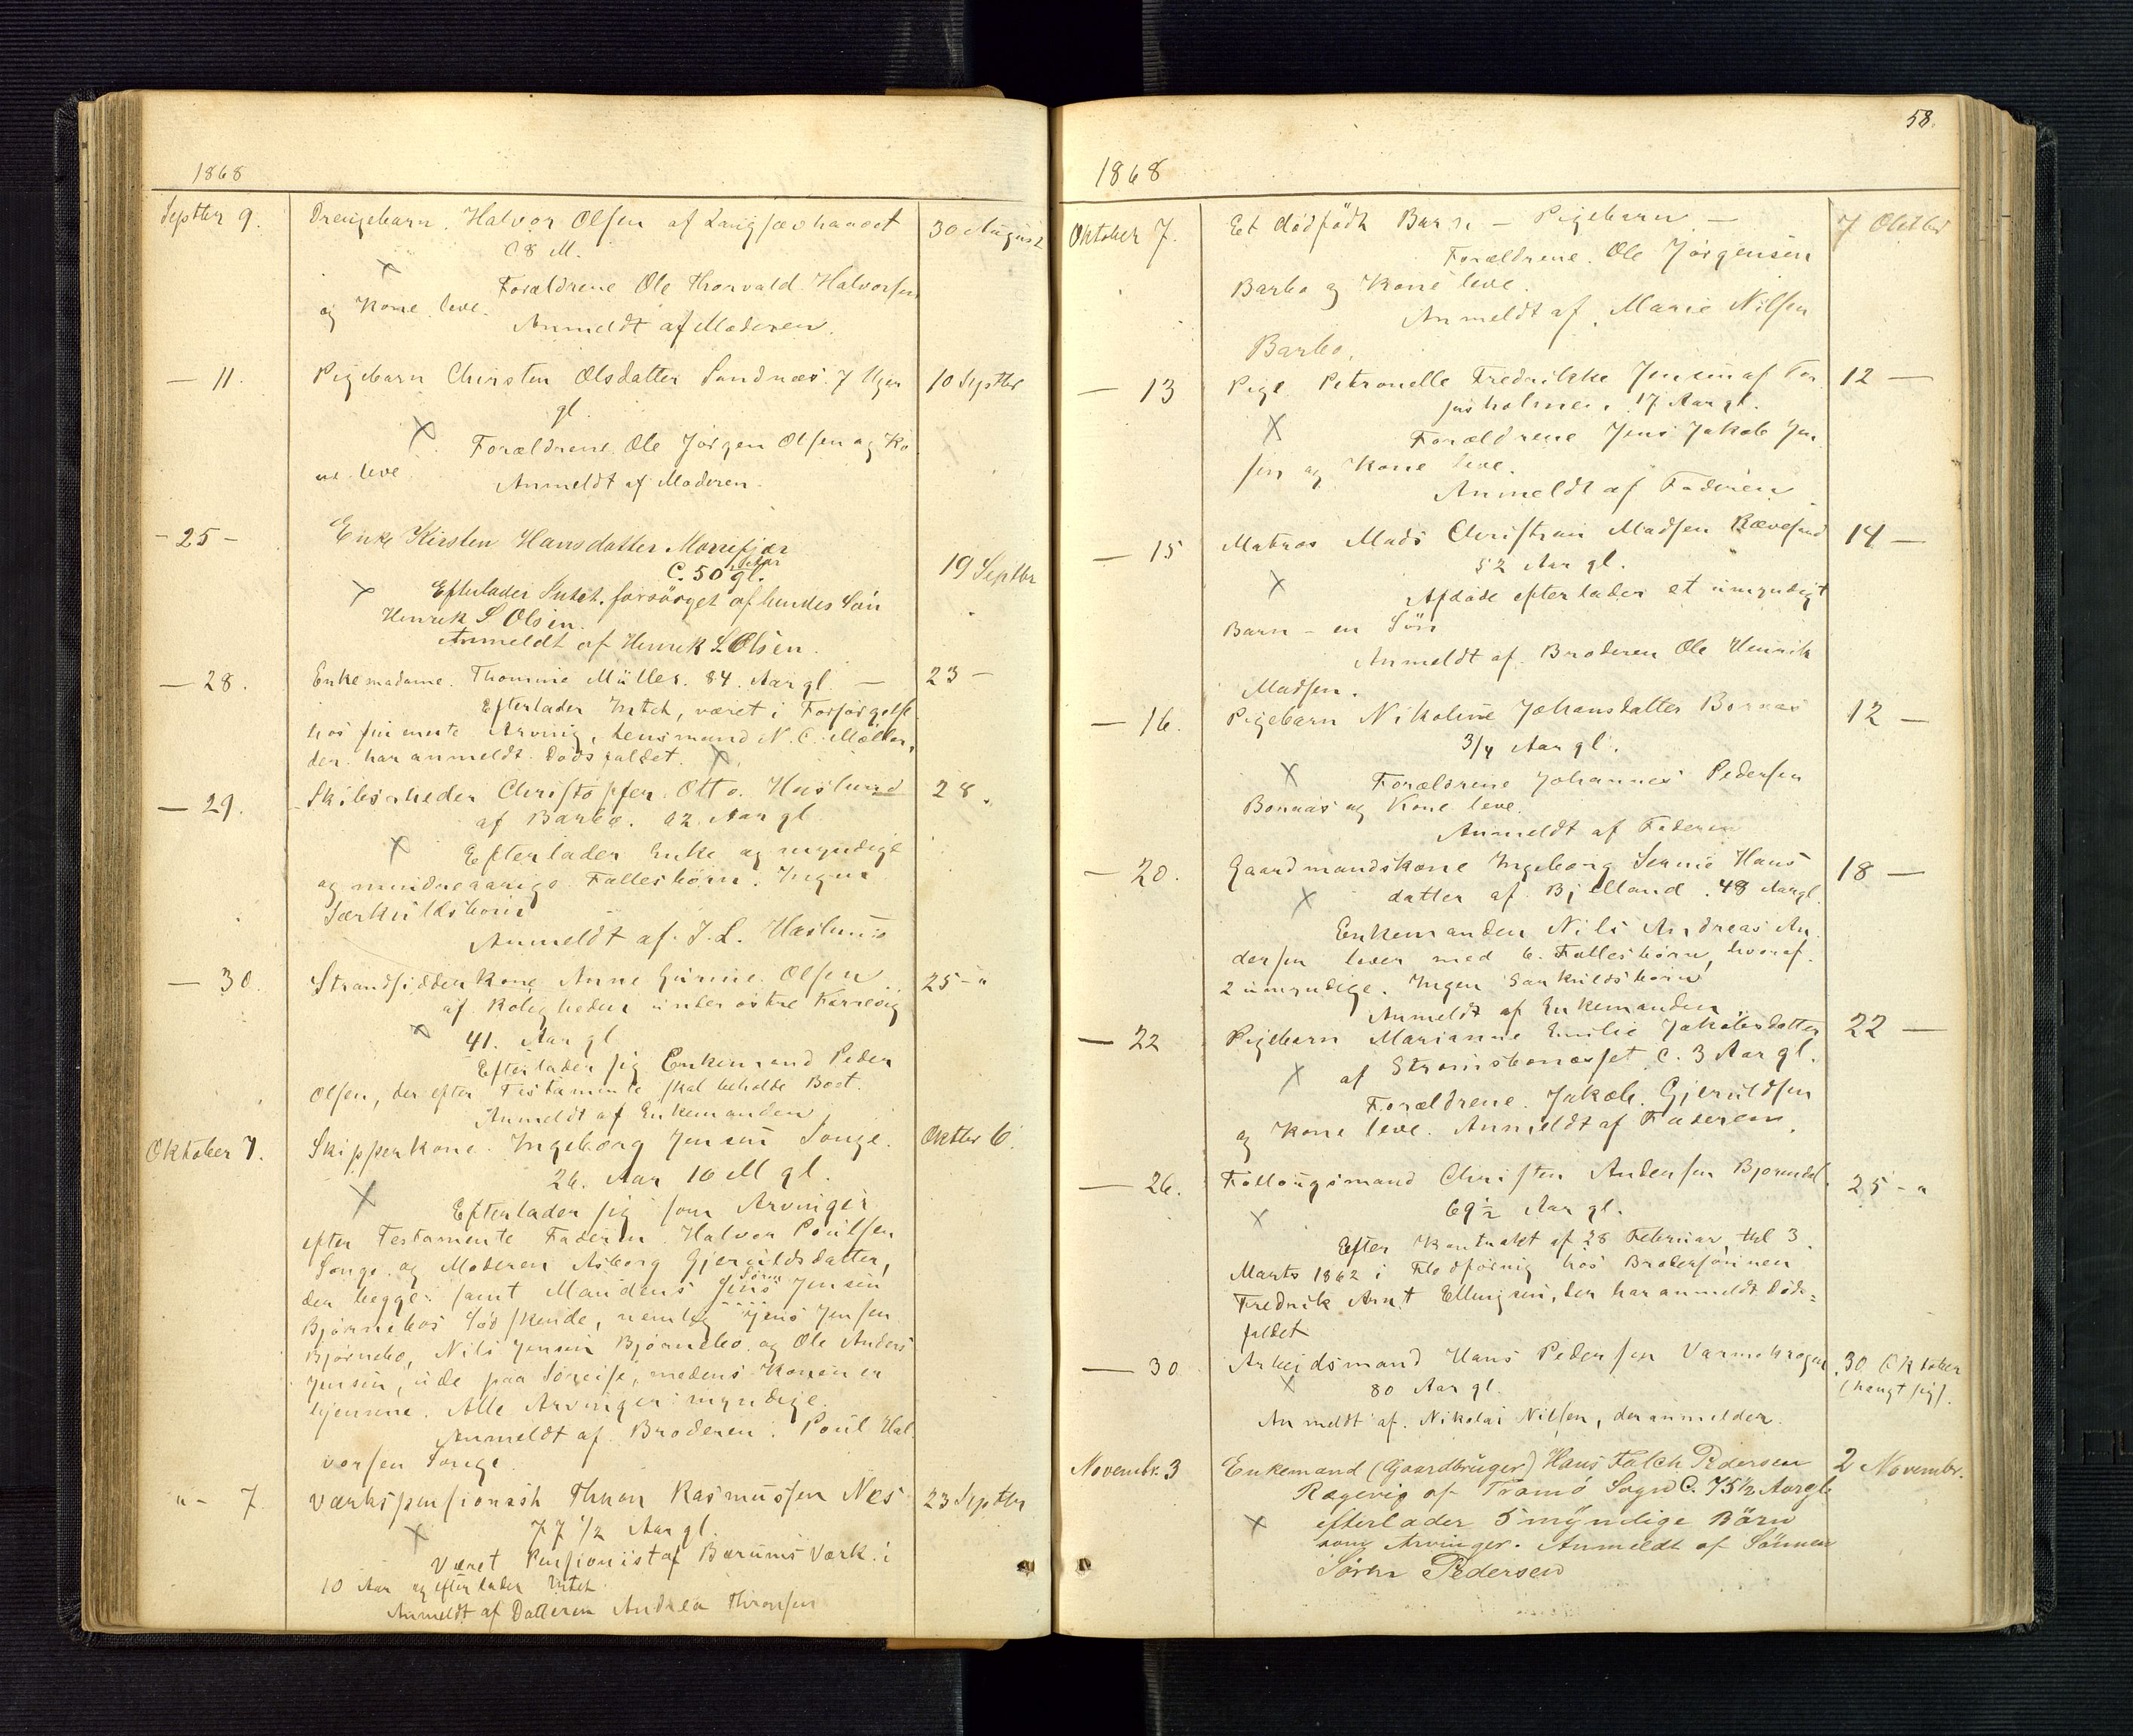 1868
Septbr 9.
Drengebarn. Halvor Olsen af Langsævhauet
30 August
C 8 M.
Forældrene Ole Thorvald Halvorsen
og Kone leve.
Anmeldt af Moderen.
— 11.
Pigebarn Chirsten Olsdatter Sandnæs 7 Uger
10 Septbr
gl.
Forældrene Ole Jörgen Olsen og Ko
ne leve
Anmeldt af Moderen.
- 25 -
Enke Kirsten Hansdatter Morefjær
C. 50 Aar gl.
19 Septbr
Efterlader Intet. forsörget af hendes Sön
Henrik S Olsen.
Anmeldt af Henrik S Olsen.
— 28.
Enkemadame. Thomine Müller. 84. Aar gl. —
23 —
Efterlader Intet, været i Forsörgelse
hos sin eneste Arving, Lensmand N. C. Möller,
der har anmeldt Dödsfaldet.
— 29.
Skibsrheder Christopfer Otto. Haslund
28.
af Barbo. 62 Aar gl
Efterlader Enke og myndige
og mindreaarige Fællesbörn. Ingen
Særkuldsbörn
Anmeldt af J. L. Haslund
— 30.
Strandsidderkone Anne Gurine Olsen
25 - "
af Roligheden under östre Færevig
41. Aar gl
Efterlader sig Enkemand Peder
Olsen, der efter Testamente skal beholde Boet.
Anmeldt af Enkemanden
Oktober 7.
Skipperkone. Ingeborg Jensen Songe.
Oktbr 6.
26. Aar 10 M gl.
Efterlader sig som Arvinger
efter Testamente Faderen Halvor Poulsen
Songe og Moderen Asborg Gjeruldsdatter,
der begge: samt Mandens Jens Sören Jensen
Björnebos Södskende, nemlig Jens Jensen
Björnebo, Nils Jensen Björnebo og Ole Anders
Jensen, ude paa Söreise, medens Konen er
hjemme. Alle Arvinger myndige.
Anmeldt af Broderen. Poul Hal
vorsen Songe.
" - 7
Værkspensionist Thron Rasmussen Nes
23 Septbr
77 1/2 Aar gl.
Været Pensionist af Bærums Værk i
10 Aar og efterlader Intet.
Anmeldt af Datteren Andrea Thronsen
58.
1868
Oktober 7.
Et dödfödt Barn — Pigebarn —
7 Oktbr
Forældrene. Ole Jörgensen
Barbo og Kone leve.
Anmeldt af Marie Nilsen
Barbo.
— 13
Pige Petronelle Fredrikke Jensen af Tor
12 —
jusholmen. 17 Aar gl.
Forældrene Jens Jakob Jen
sen og Kone leve.
Anmeldt af Faderen
— 15
Matros Mads Christian Madsen Rævesand
14 —
52 Aar gl.
Afdöde efterlader et umyndigt
Barn - en Sön
Anmeldt af Broderen Ole Henrik
Madsen.
— 16.
Pigebarn Nikoline Johansdatter Bonnæs
12 —
3/4 Aar gl.
Forældrene Johannes Pedersen
Bonnæs og Kone leve.
Anmeldt af Faderen
— 20.
Gaardmandskone Ingeborg Hans
18 —
datter af Bjelland. 48 Aar gl.
Enkemanden Nils Andreas An
dersen lever med 6. Fællesbörn, hvoraf
2 umyndige. Ingen Særkuldsbörn
Anmeldt af Enkemanden
— 22
Pigebarn Marianne Emilie Jakobsdatter
22 —
af Strömsbonæsset C. 3 Aar gl.
Forældrene Jakob. Gjeruldsen
og Kone leve. Anmeldt af Faderen.
— 26.
Föllougsmand Christen Andersen Bjorendal.
25 - "
69 1/2 Aar gl.
Efter Kontrakt af 28 Februar thl 3
Marts 1862 i Flodföring hos Brodersönnen
Fredrik Arnt Ellingsen, der har anmeldt Döds=
faldet
— 30
Arbeidsmand Hans Pedersen Varmekrogen
30 Oktober
80 Aar gl.
(hængt sig).
Anmeldt af. Nikolai Nilsen, der anmelder.
Novembr. 3
Enkemand (Gaardbruger) Hans Falch Pedersen
2 Novembr.
Rægevig af Tromö Sogn C. 75 1/2 Aar gl
efterlader 5 myndige Börn
som Arvinger. Anmeldt af Sönnen
Sören Pedersen